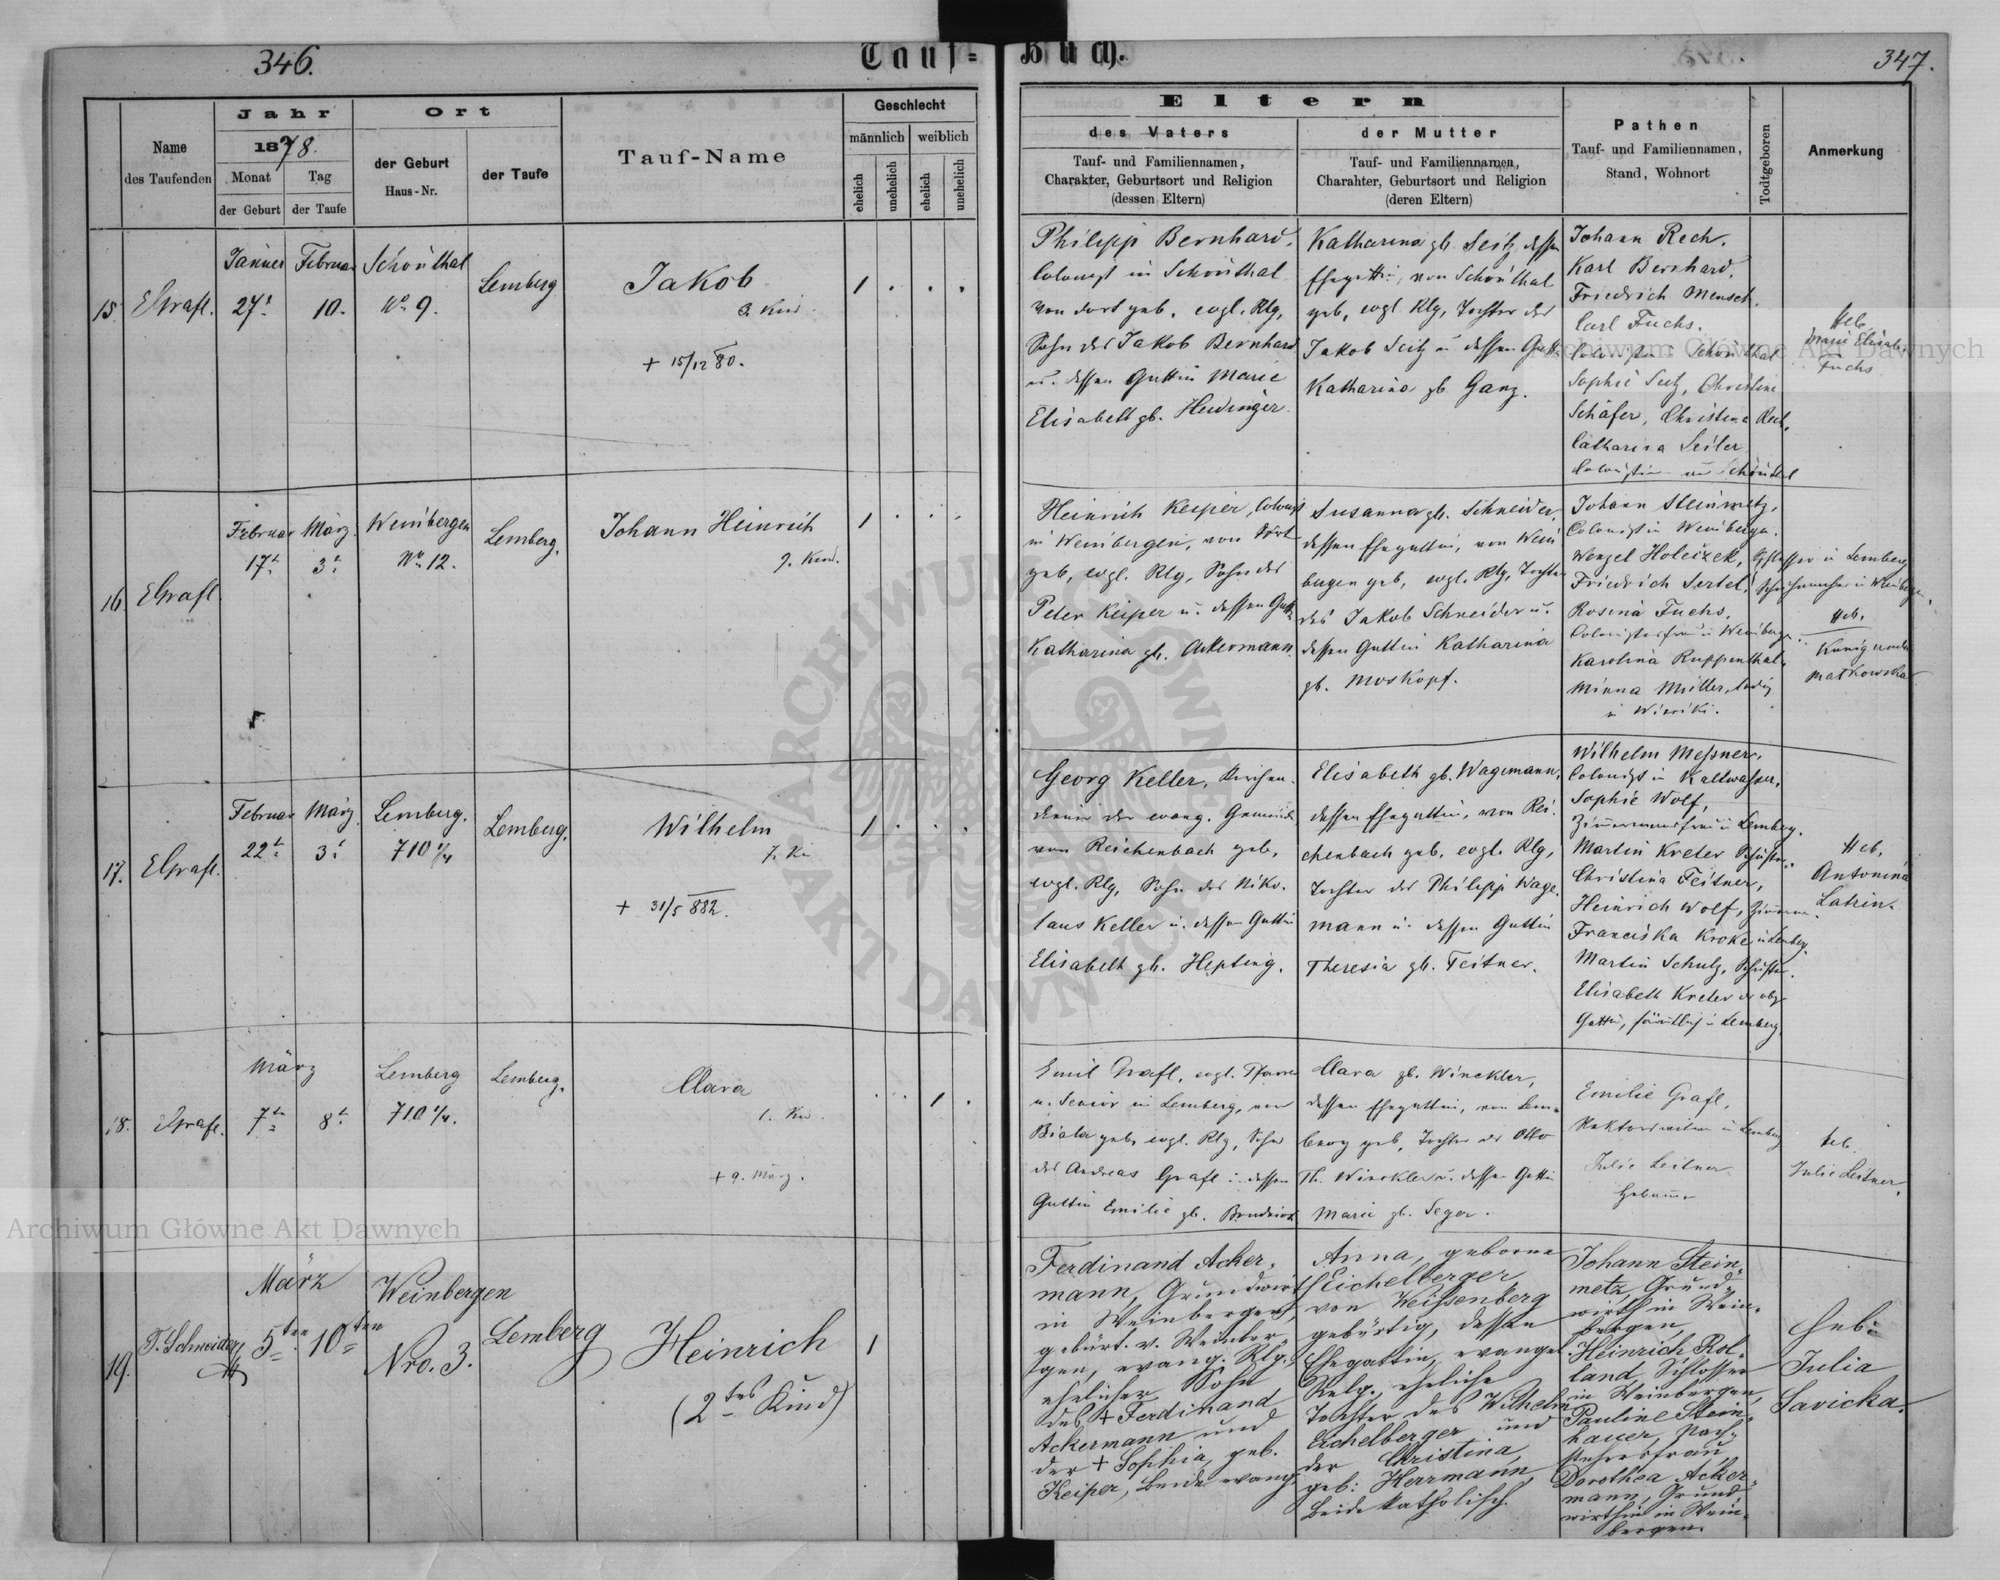 346.
Tauf=
Buch.
347.
Name
des Taufenden
Jahr
1878.
Monat
Tag
der Geburt
der Taufe
Ort
der Geburt
Haus-Nr.
der Taufe
Tauf-Name
Geschlecht
männlich
weiblich
ehelich
unehelich
ehelich
unehelich
Eltern
des Vaters
Tauf- und Familiennamen,
Charakter, Geburtsort und Religion
(dessen Eltern)
der Mutter
Tauf- und Familiennamen,
Charahter, Geburtsort und Religion
(deren Eltern)
Pathen
Tauf- und Familiennamen,
Stand, Wohnort
Todtgeboren
Anmerkung
15.
EGrafl.
Jänner
27t
Februar
10.
Schönthal
No 9.
Lemberg
Jakob
+ 15/12 80.
1
Philipp Bernhard,
Colonist in Schönthal
von dort geb. evgl. Rlg,
Sohn des Jakob Bernhard
u. dessen Gattin Marie
Elisabeth gb.
Katharina gb. Seitz, dessen
Ehegattin, von Schönthal
geb. evgl. Rlg, Tochter des
Jakob Seitz u dessen Gatt.
Katharina gb Ganz.
Johann Rech.
Karl Bernhard.
Friedrich Mensch.
Carl Fuchs.
Schönthal
Sophie Seitz, Christine
Schäfer, Christina Rech,
Catharina Seiler
Schönthal
Heb.
Marie Elisab.
Fuchs
16.
EGrafl.
Februar
17t
März
3t
Weinbergen
No 12.
Lemberg.
Johann Heinrich
9. Kind.
1
Heinrich Keiper, Colonist
in Weinbergen, von dort
geb, evgl. Rlg, Sohn des
Peter Keiper u. dessen Gatt.
Katharina gb. Ackermann.
Susanna gb. Schneider,
dessen Ehegattin, von Wein
bergen geb, evgl. Rlg, Tochter
des Jakob Schneider u.
dessen Gattin Katharina
gb. Moskopf.
Johann Steinmetz,
Colonist in Weinbergen.
Wenzel Holeizek, Schlosser in Lemberg
Friedrich
Rosina Fuchs,
Karolina Ruppenthal.
Minna Müller, ledig
Heb.
Kunigunda
Matkowska
17.
EGrafl.
Februar
22t
März
3t
Lemberg.
710 1/4
Lemberg.
Wilhelm
+ 31/5 882.
1
Georg Keller, Kirchen-
diener der evang. Gemeinde
von Reichenbach geb,
evgl. Rlg, Sohn des Niko-
laus Keller u. dessen Gattin
Elisabeth gb. Hepting.
Elisabeth gb. Wagemann,
dessen Ehegattin, von Rei-
chenbach geb, evgl. Rlg,
Tochter des Philipp Wage-
mann u. dessen Gattin
Theresia gb. Feitner.
Wilhelm Meßner,
Colonist in Kaltwasser,
Sophie Wolf,
Zimmermannsfrau in Lemberg.
Martin Kreter
Christina Feitner,
Heinrich Wolf,
Franciska Kroke in Lemberg.
Martin Schulz,
Elisabeth Kreter
Gattin, sämtlich in Lemberg.
Heb.
Antonina
18.
EGrafl.
März
7te
8t
Lemberg
710 1/4.
Lemberg.
Clara
1. Kind.
+ 9. März.
1
Emil Grafl, evgl. Pfarrer
u. Senior in Lemberg, von
Biala geb, evgl. Rlg, Sohn
des Andreas Grafl u. dessen
Gattin Emilie gb.
Clara gb. Winckler,
dessen Ehegattin, von Lem-
berg geb, Tochter des Otto
Th. Winckler u. dessen Gattin
Marie gb. Seger.
Emilie Grafl,
Rektorswitwe in Lemberg
Julie Leitner
Hebamme
Heb.
Julie Leitner.
19.
T. Schneider
März
5ten
10ten
Weinbergen
Nro. 3.
Lemberg
Heinrich
(2tes Kind)
1
Ferdinand Acker-
mann, Grundwirth
in Weinbergen,
gebürt. v. Weinber-
gen, evang. Rlg.
ehelicher Sohn
des + Ferdinand
Ackermann und
der + Sophia, geb.
Keiper, beide evang.
Anna, geborne
Eichelberger
von Weissenberg
gebürtig, dessen
Ehegattin, evangel.
Relg. eheliche
Tochter des Wilhelm
Eichelberger und
der Christina,
geb: Herrmann,
beide katholisch.
Johann Stein-
metz, Grund-
wirth in Wein-
bergen,
Heinrich Rol-
land, Schlosser
in Weinbergen,
Pauline Stein-
hauer,
Dorothea Acker-
mann, Grund-
wirthin in Wein-
bergen.
Heb:
Julia
Savicka.
Archiwum Główne Akt Dawnych
Archiwum Główne Akt Dawnych
ARCHIWUM GŁÓWNE AKT DAWNYCH